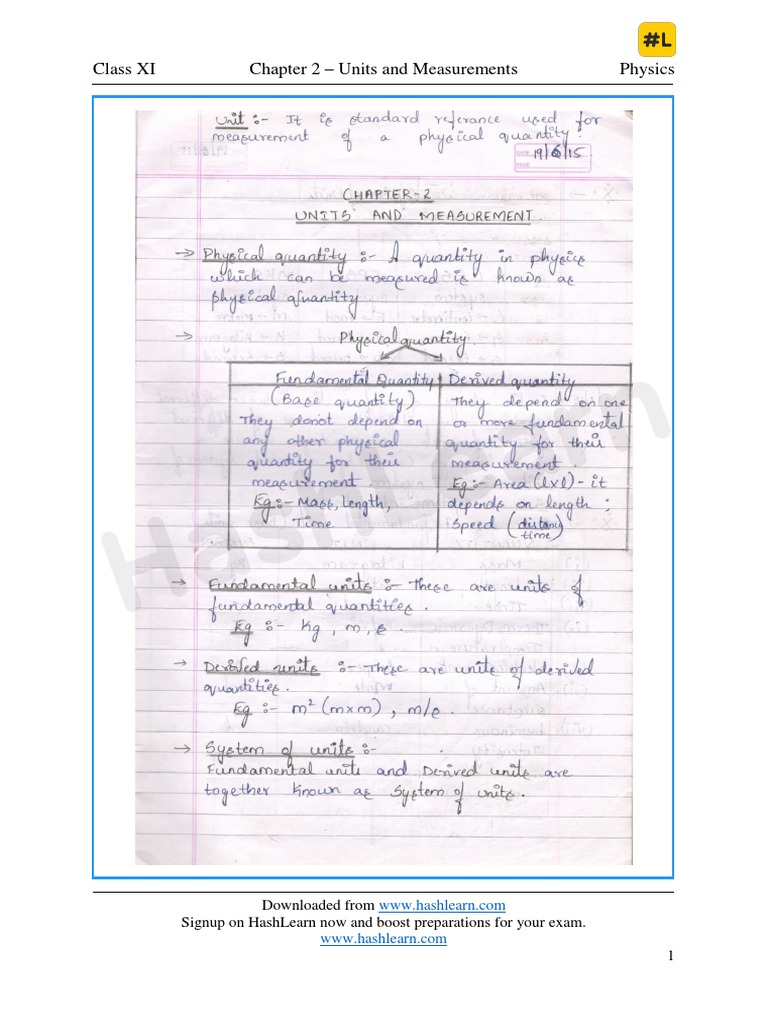 #L
Class XI Chapter 2 – Units and Measurements Physics
Unit :- It is standard referance used for
measurement of a physical quantity.
DATE 19/6/15
PAGE
CHAPTER-2
UNITS AND MEASUREMENT.
→ Physical quantity :- A quantity in physics
which can be measured is known as
physical quantity
→ Physical quantity.
Fundamental Quantity
(Base quantity)
They donot depend on
any other physical
quantity for their
measurement.
Eg:- Mass, Length,
Time
Derived quantity
They depend on one
or more fundamental
quantity for their
measurement.
Eg:- Area (l×l) - it
depends on length ;
Speed (distance/time)
→ Fundamental units :- These are units of
fundamental quantities.
Eg :- Kg, m, s.
→ Derived units :- These are units of derived
quantities.
Eg :- m² (m×m), m/s.
→ System of units :-
Fundamental units and Derived units are
together known as System of units.
HashLearn
Downloaded from www.hashlearn.com
Signup on HashLearn now and boost preparations for your exam.
www.hashlearn.com
1